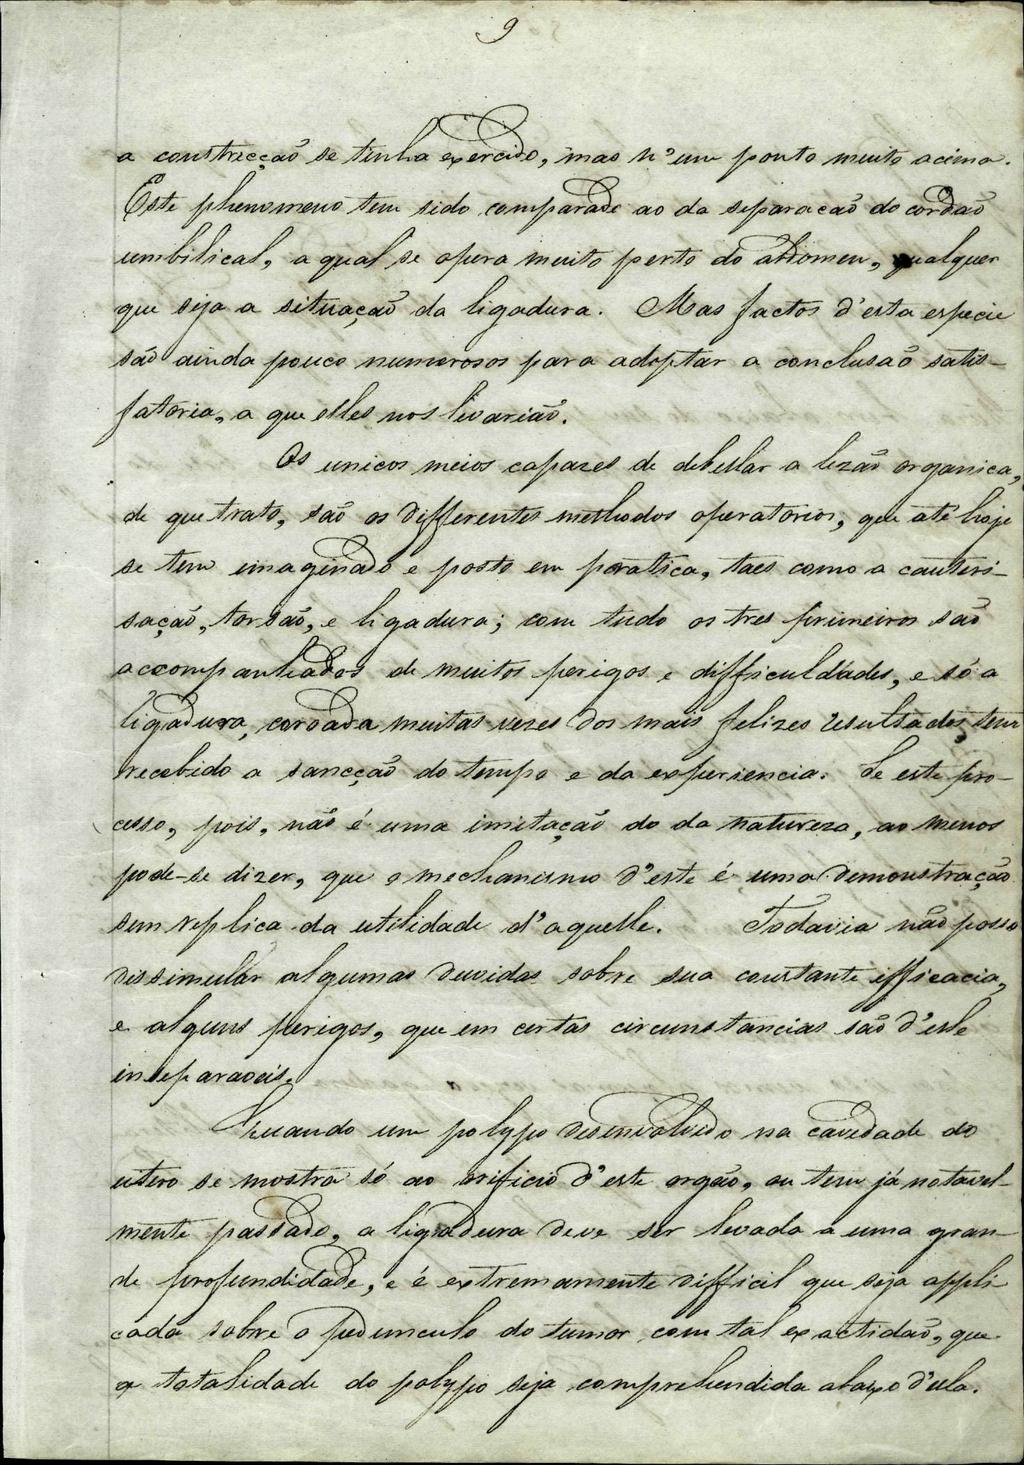 9
a constricção se tinha exercido, mas n'um ponto muito acima.
Este phenomeno tem sido comparado ao da separacaõ do cordaõ
umbilical, a qual se opera muito perto do abdomen, qualquer
que seja a situaçaõ da ligadura. Mas factos d'esta especie
saõ ainda pouco numerosos para adoptar a conclusaõ satis-
fatoria, a que elles nos livariaõ.
Os unicos meios capazes de debellar a lezaõ organica,
de que trato, saõ os differentes methodos operatorios, que até hoje
se tem imaginado e posto em pratica, taes como a cauteri-
saçaõ, torsaõ, e ligadura; com tudo os tres primeiros saõ
accompanhados de muitos perigos e difficuldades, e só a
ligadura, coroada muitas vezes dos mais felizes resultados, tem
recebido a sancçaõ do tempo e da experiencia. Se este pro-
cesso, pois, naõ é uma imitaçaõ do da natureza, ao menos
pode-se dizer, que o mechanismo d'este é uma demonstraçaõ
sem replica da utilidade d'aquelle. Todavia naõ posso
dissimular algumas duvidas sobre sua constante efficacia,
e alguns perigos, que em certas circunstancias saõ d'elle
inseparaveis.
Quando um polypo desenvolvido na cavidade do
utero se mostra só ao orificio d'este orgaõ, ou tem já notavel-
mente passado, a ligadura deve ser levada a uma gran-
de profundidade, e é extremamente difficil que seja appli
cada sobre o pedunculo do tumor com tal exactidaõ, que
a totalidade do polypo seja comprehendida abaixo d'ela.